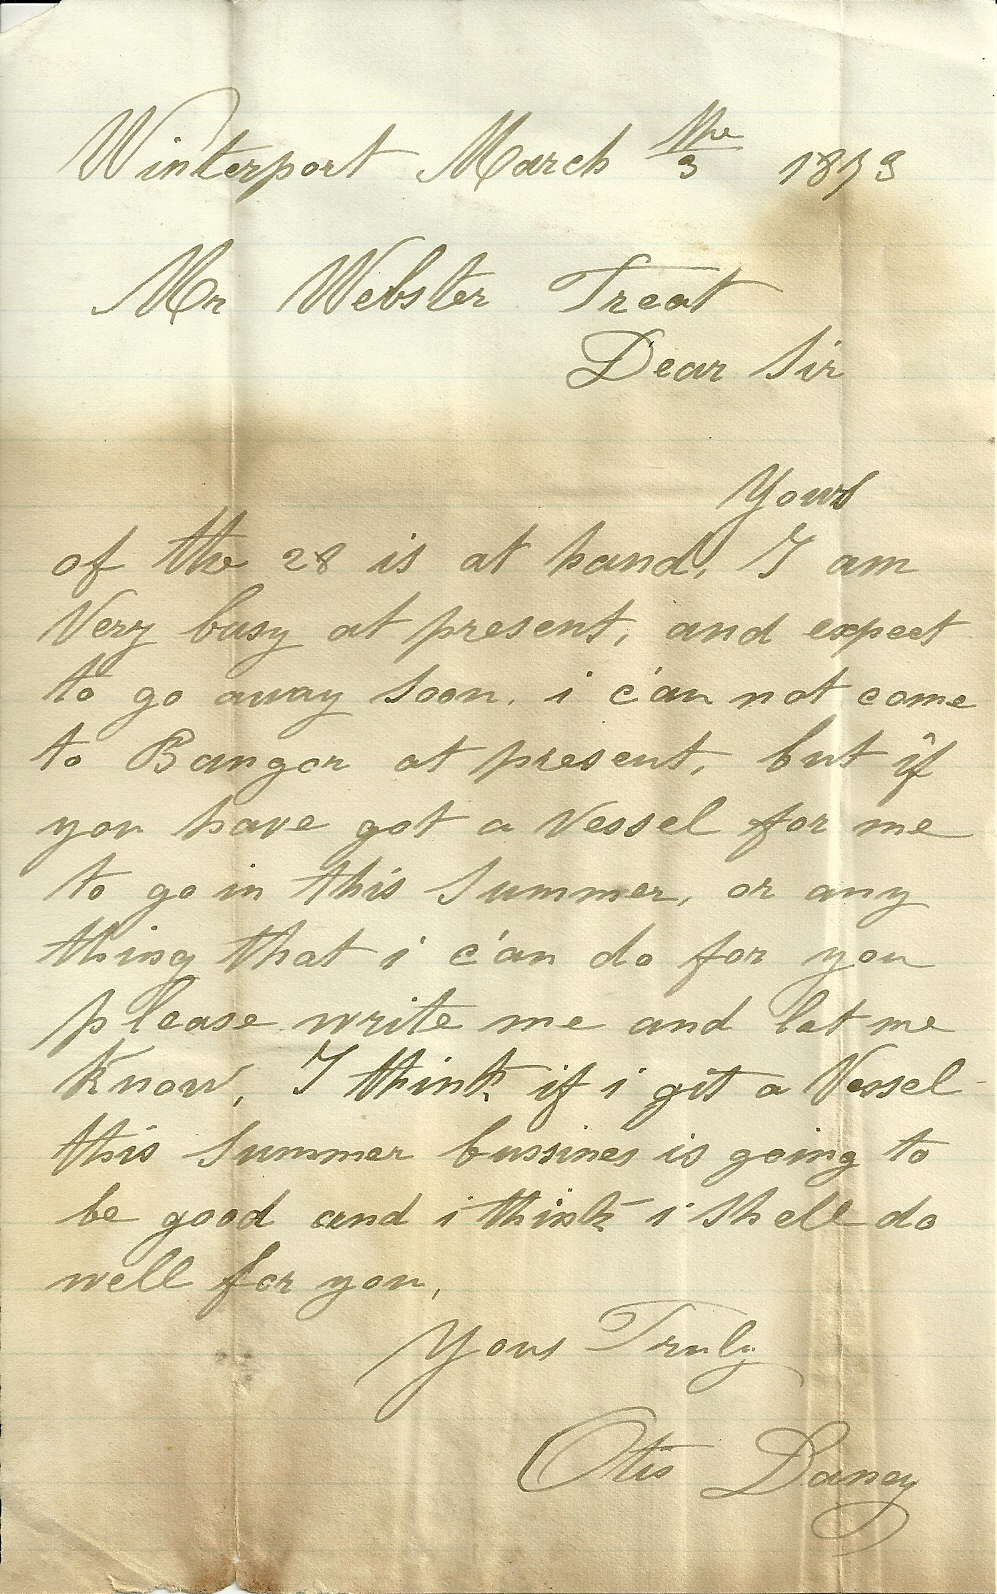 Winterport March the 3 1873
Mr Webster Treat
Dear Sir
Yours
of the 28 is at hand, I am
Very busy at present, and expect
to go away Soon. i can not come
to Bangor at present, but if
you have got a Vessel for me
to go in this Summer, or any
thing that i can do for you
please write me and let me
Know, I think if i git a Vessel
this Summer bussines is going to
be good and i think i Shell do
well for you,
Yous Truly
Otis